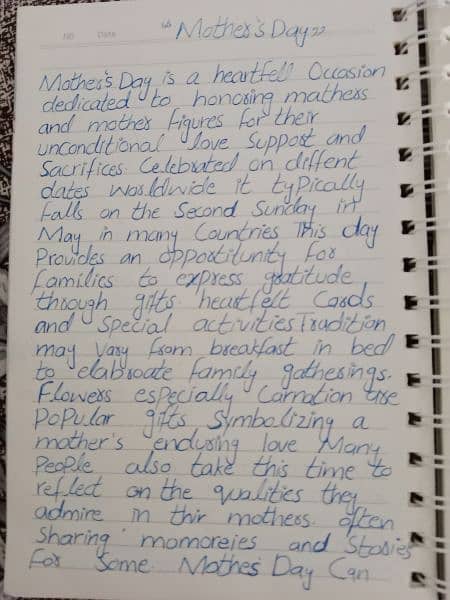 No Date
"Mother's Day"
Mother's Day is a heartfell Occasion
dedicated to honoring mathers
and mother figures for their
unconditional love support and
Sacrifices. Celebrated on diffent
dates worldwide it typically
falls on the Second Sunday in
May in many Countries This day
Provides an opportitunity for
families to express gratitude
through gifts heartfelt Cards
and special activities Tradition
may vary from breakfast in bed
to elabroate family gatherings.
Flowers especially Carnation are
Popular gifts symbolizing a
mother's enduring love Many
People also take this time to
reflect on the qualities they
admire in thir mothers. often
Sharing momoreies and Stories
For Some Mothes Day Can